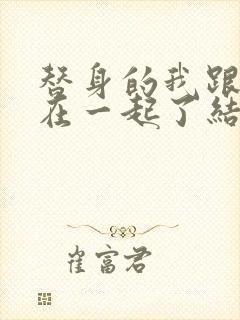 替身的我跟
在一起了结
崔富君